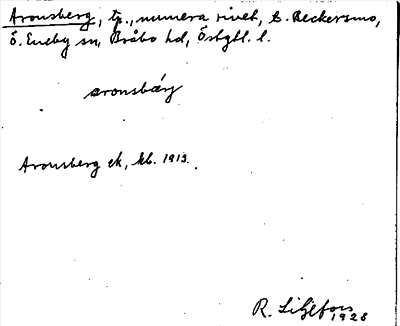 Aronsberg, tp., numera rivet, t. Beckersmo,
Ö. Eneby sn, Bråbo hd, Östgtl. l.
aronsbärj
Aronsberg ek, kb. 1913.
R. Liljefors
1928